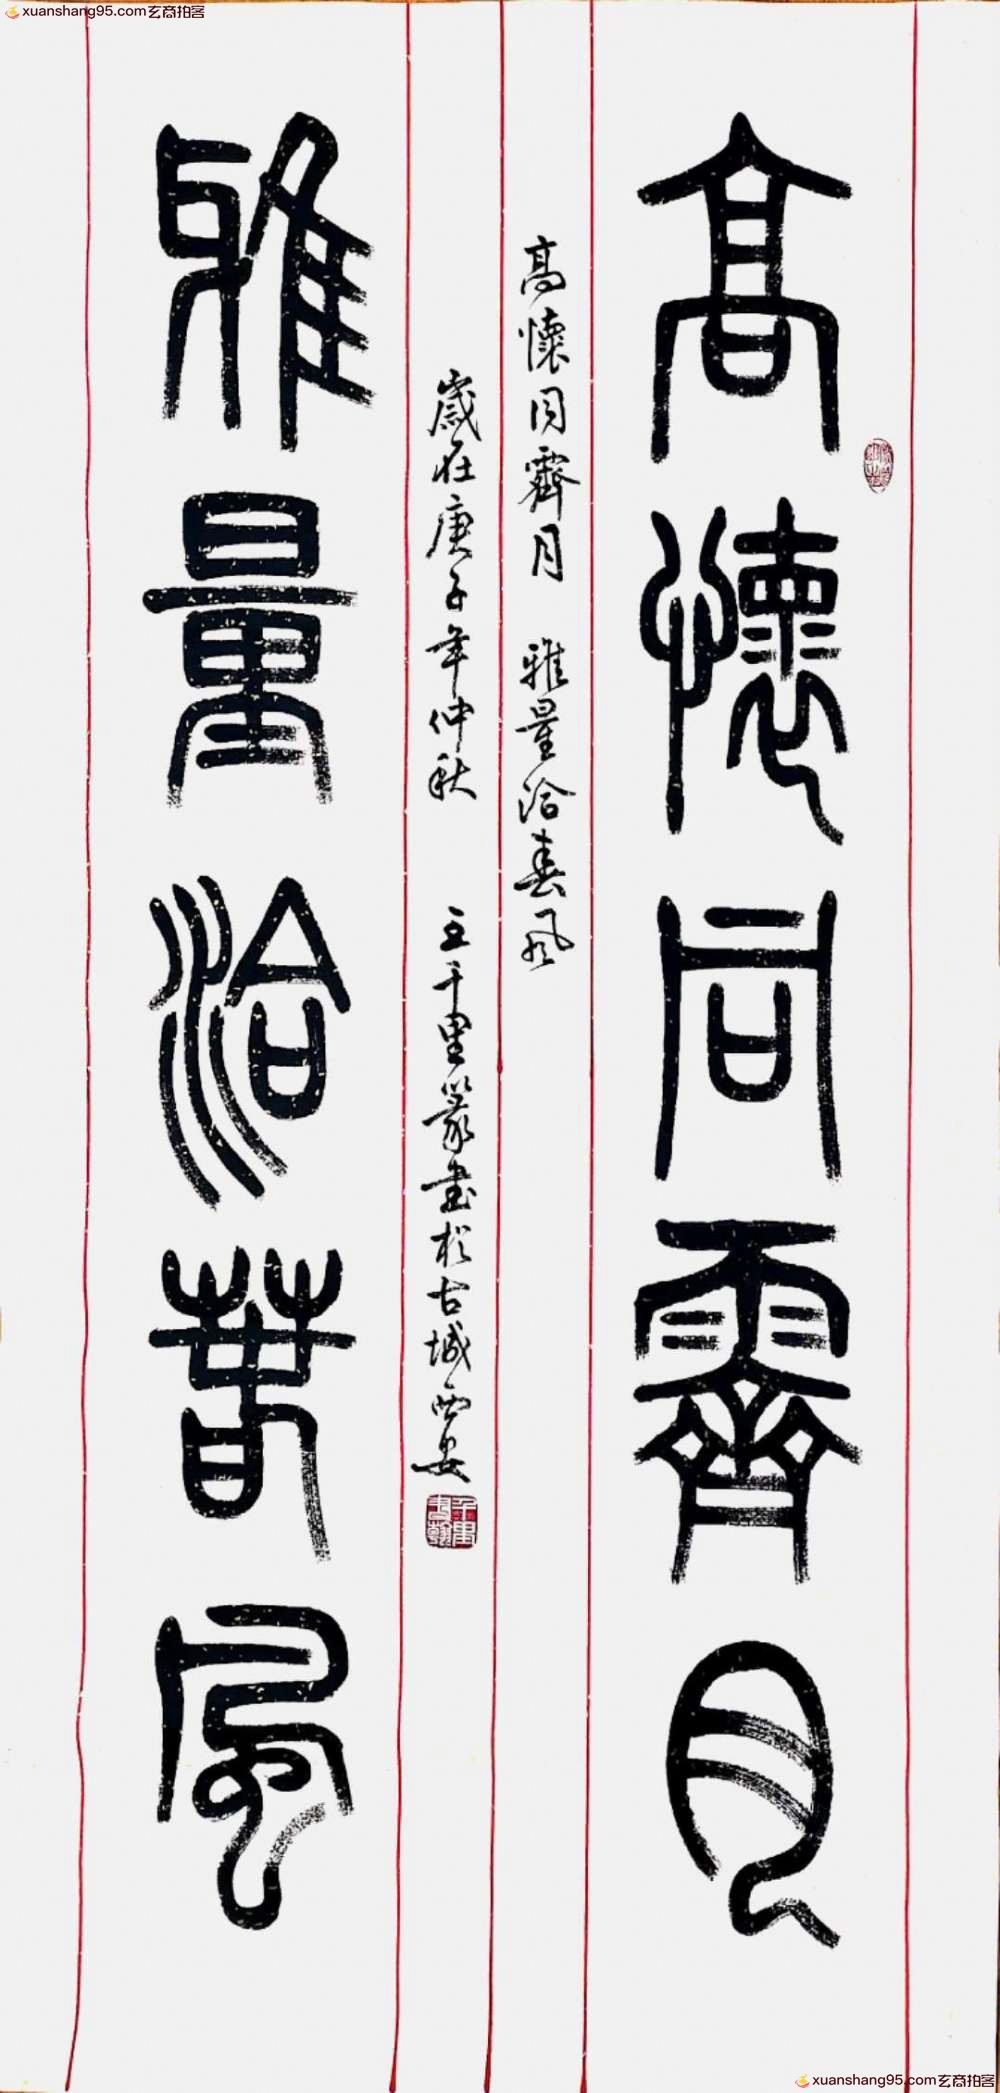 xuanshang95.com玄商拍客
高懷同霽月
高懷同霽月 雅量洽春風
歲在庚子年仲秋 王千里篆书於古城西安
雅量洽春風
xuanshang95.com玄商拍客